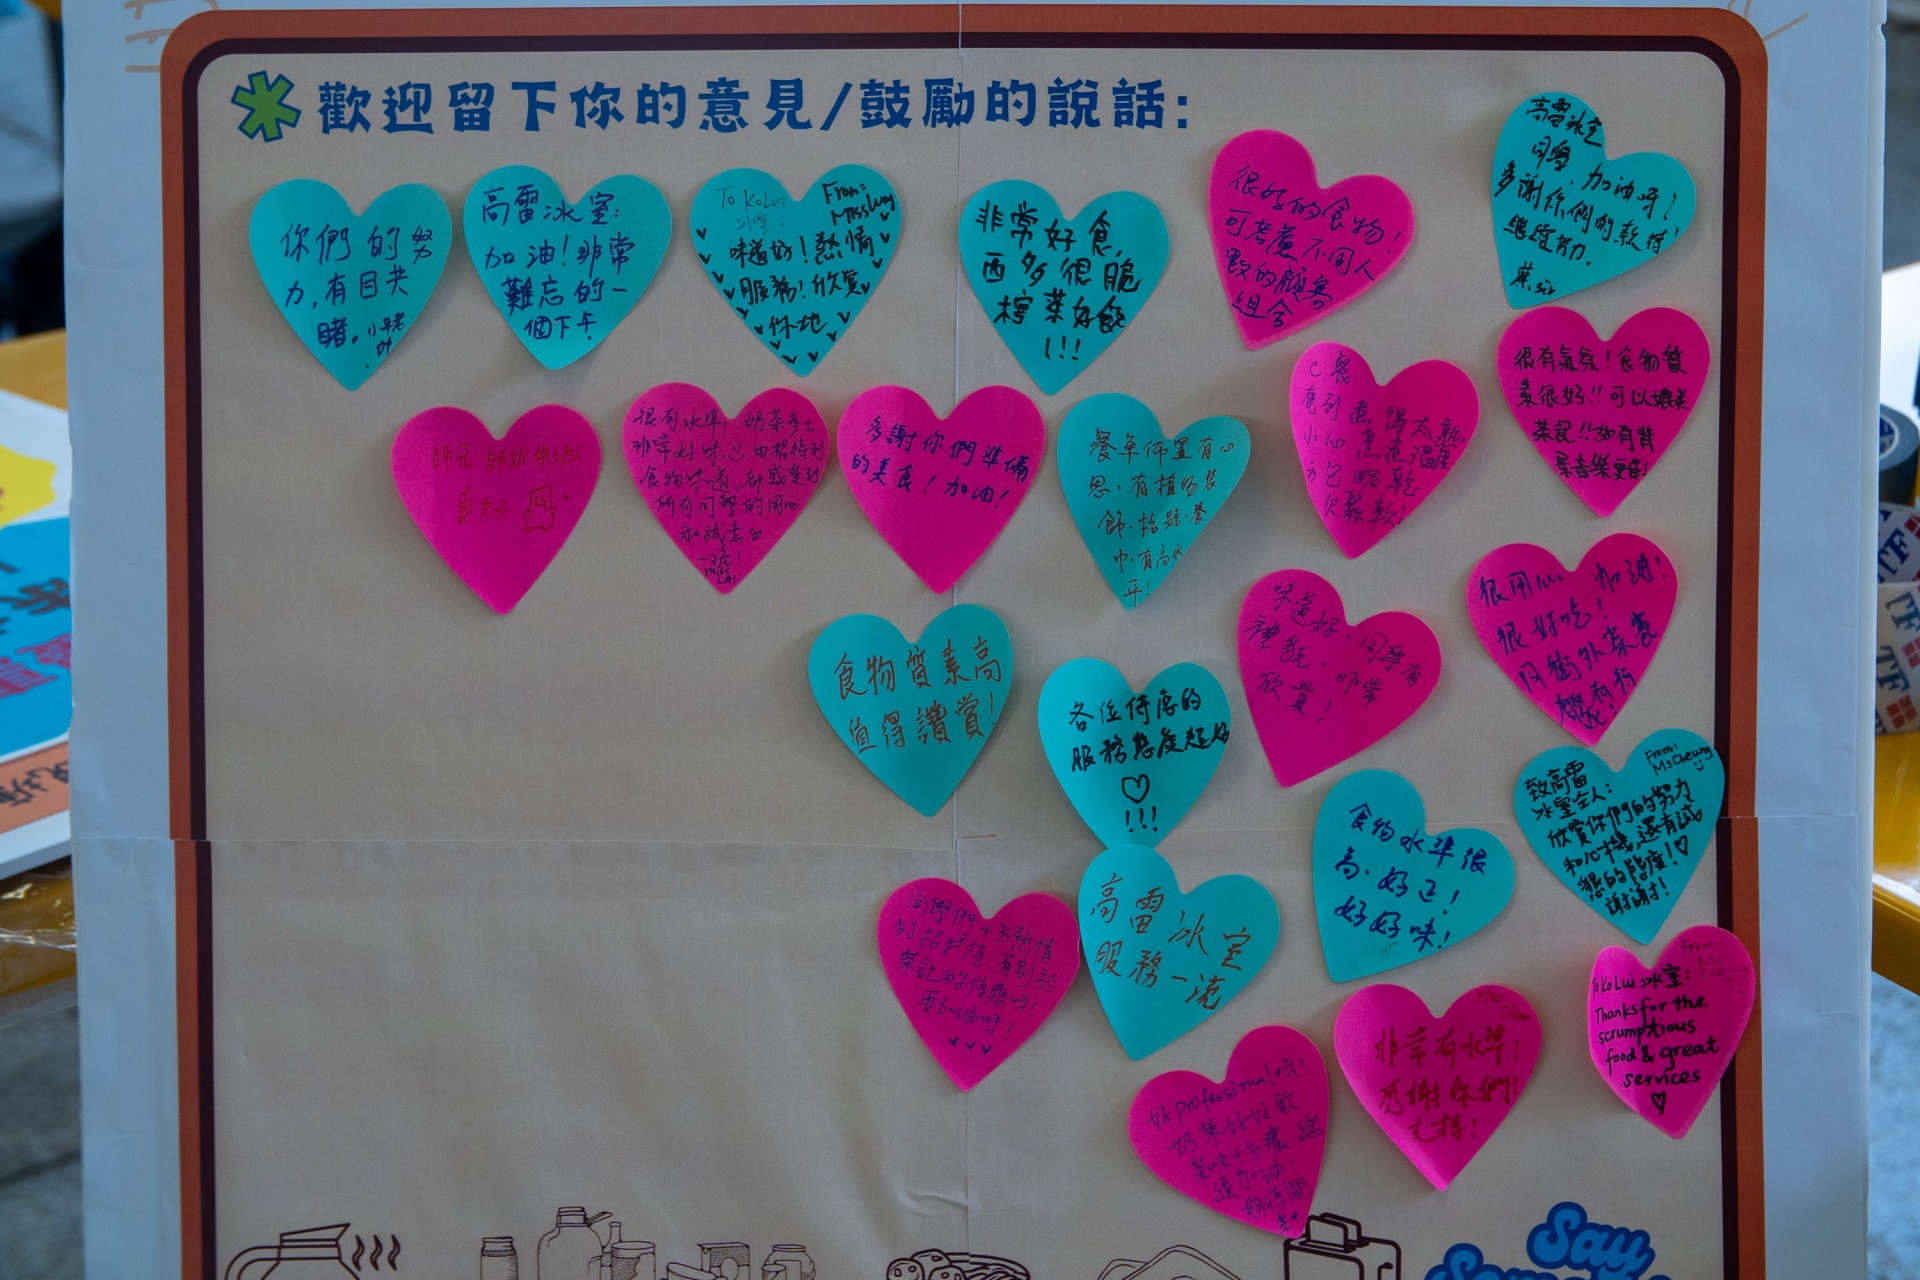 歡迎留下你的意見/鼓勵的說話:
你們的努
力,有目共
睹。
高雷冰室:
加油!非常
難忘的一
個下午.
To Ko Lui
冰室:
From:
味道好!熱情
服務!欣賞
你地
非常好食,
西多很脆
檸茶好飲
!!!
很好的食物!
可考慮不同人
數的顧客
組合
高雷冰室
同學,加油呀!
多謝你們的款待!
繼續努力.
蔡sir
師兄師姐你地人
真好
很有水準!奶茶多士
非常好味
食物味道,都感受到
所有同學的用心
和誠意
多謝你們準備
的美食!加油!
餐單佈置有心
思,有植物裝
飾,枱號,餐
巾,有高水
平!
C餐
方包略乾
欠鬆軟!
很有氣氛!食物質
素很好!!可以媲美
茶記!!如有背
景音樂更佳!
食物質素高
值得讚賞!
各位侍應的
服務態度超好
♡
!!!
味道好,同學有
禮貌,非常
欣賞!
很用心,加油!
很好吃!
同街外茶餐
食物水準很
高,好正!
好好味!
From:
Ms Cheung
致高雷
冰室主人:
欣賞你們的努力
和心機,還有誠
懇的態度!♡
謝謝!
同學們十分熱情
的招待 有別於
茶記的侍應呀!
要加油呀!
高雷冰室
服務一流
From:
Ms
To Ko Lui 冰室:
Thanks for the
scrumptious
food & great
services
♡
非常有水準!
感謝你們!
支持!
好professional呀!
奶茶好好飲,
茶味十分濃 繼
續加油!
Say